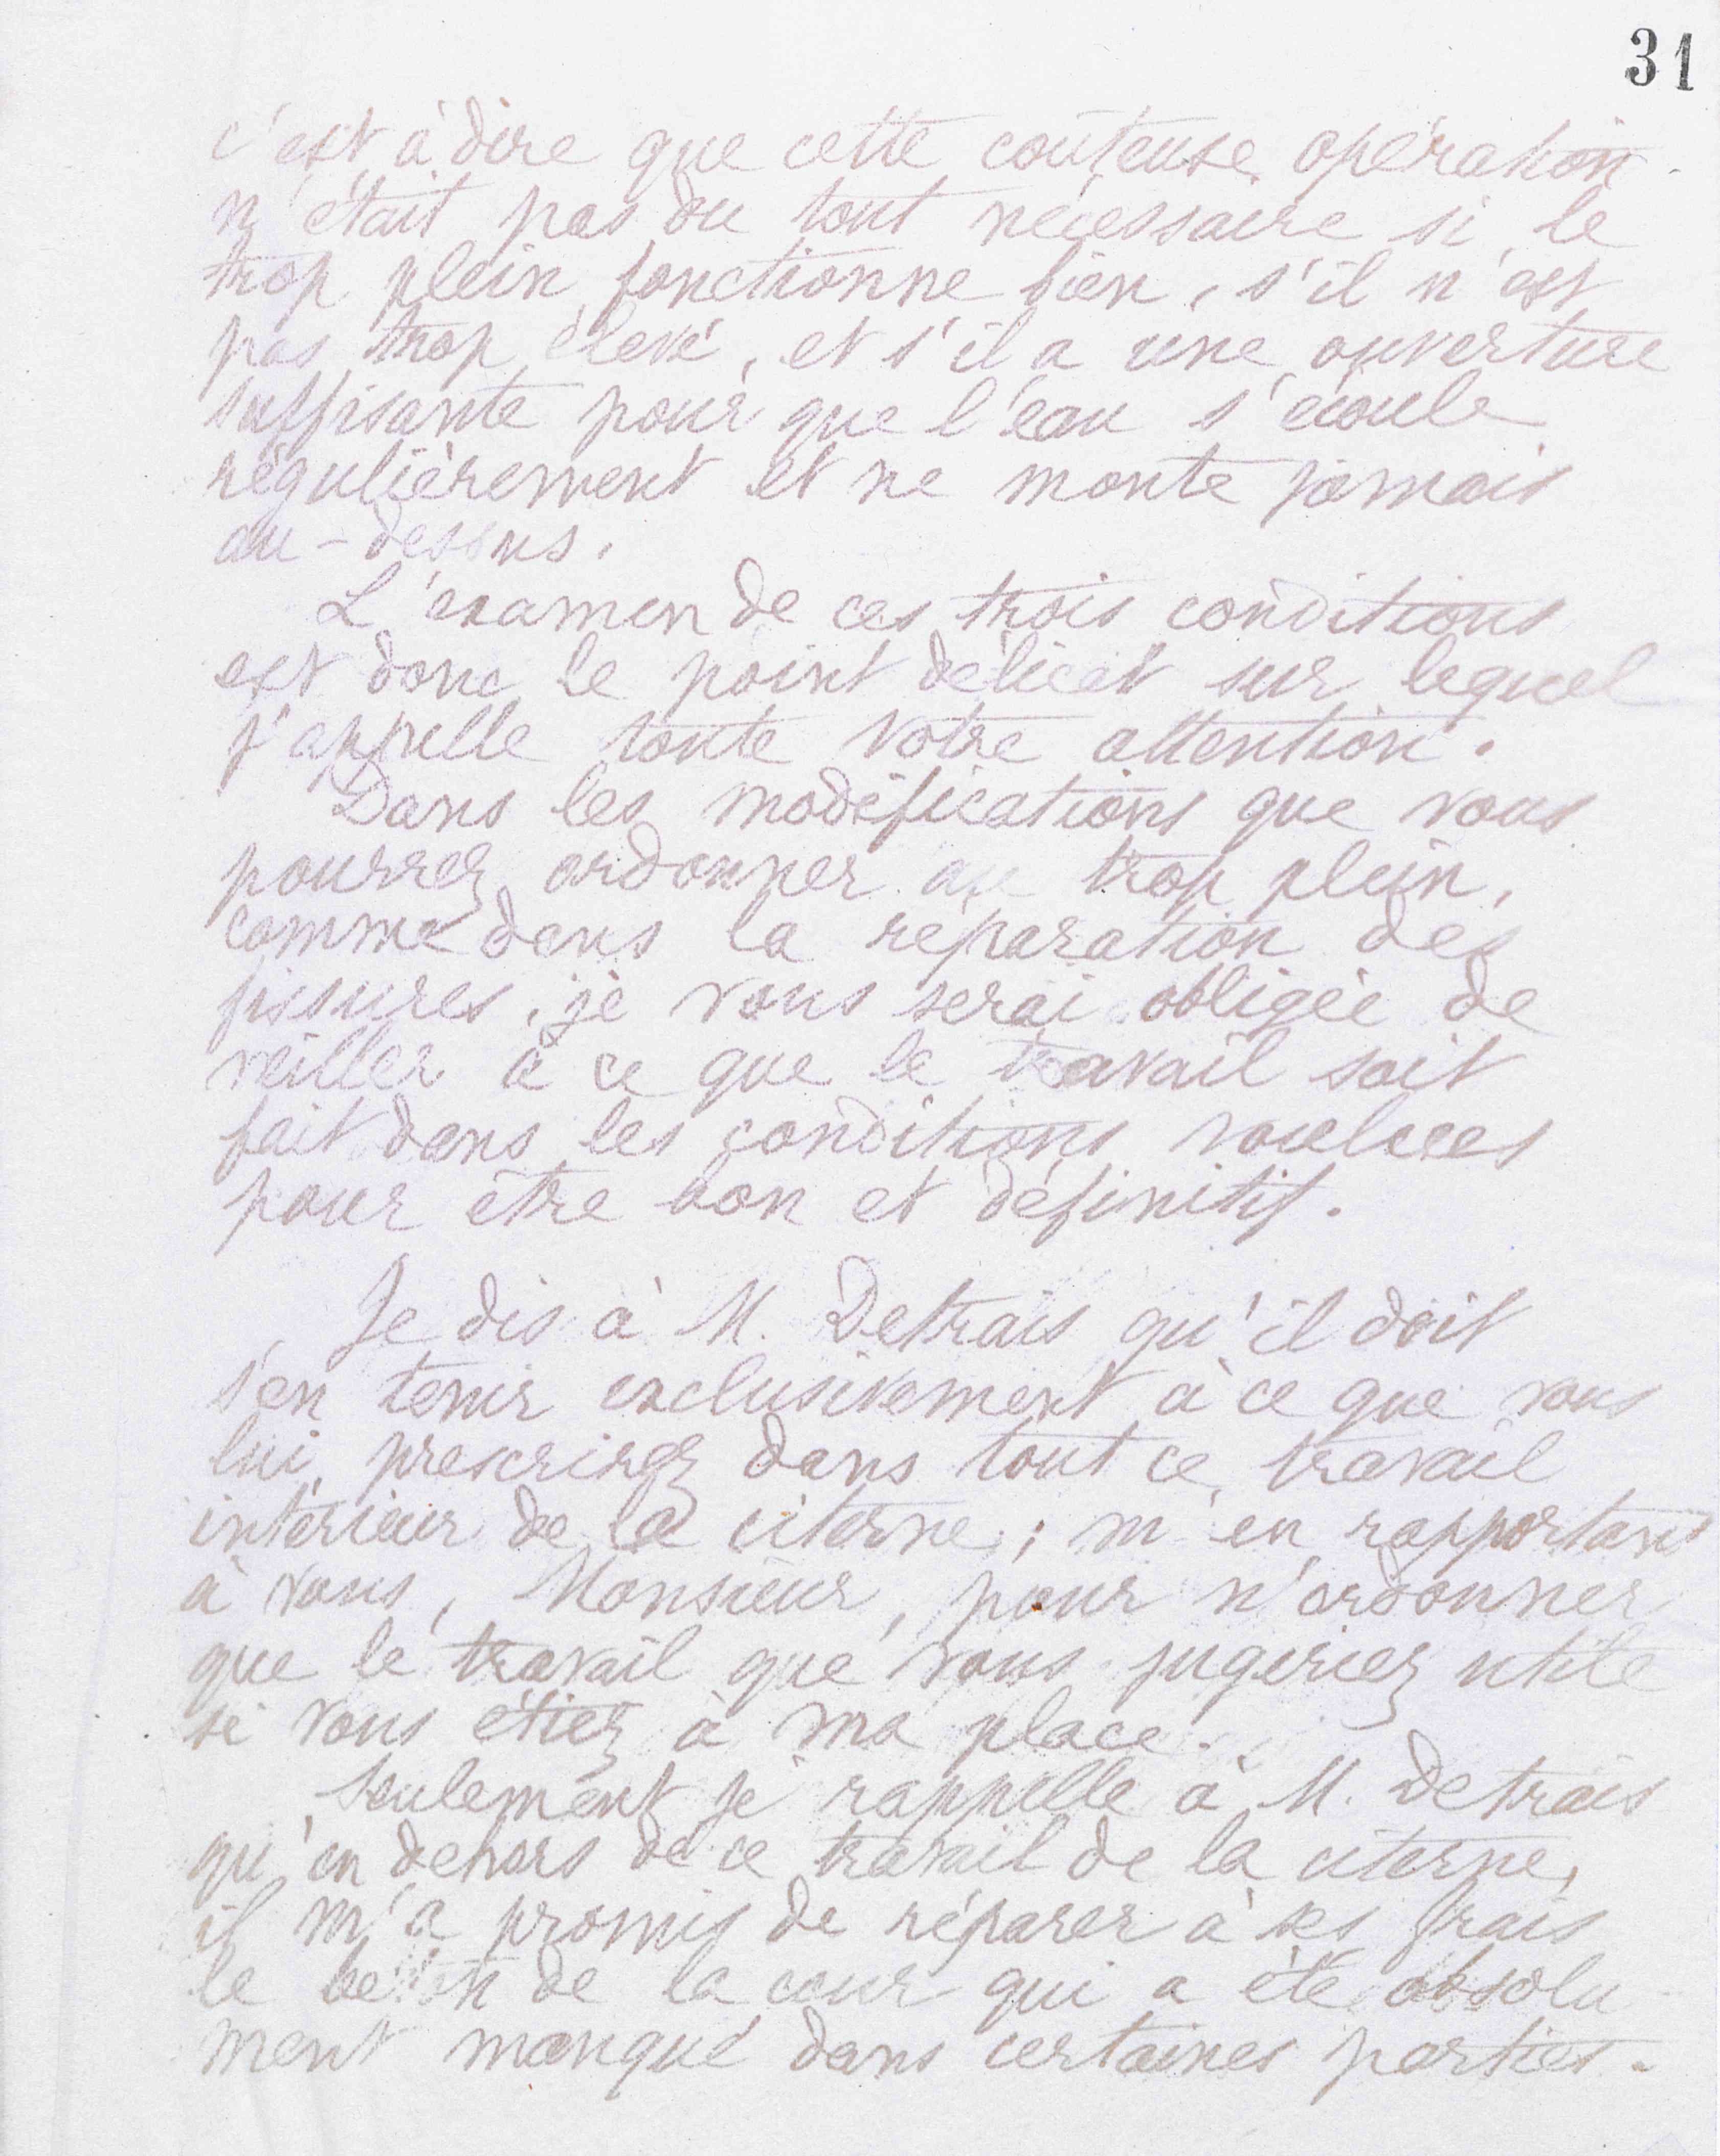 31
c'est à dire que cette coûteuse opération
n'était pas du tout nécessaire si le
trop plein fonctionne bien, s'il n'est
pas trop élevé, et s'il a une ouverture
suffisante pour que l'eau s'écoule
régulièrement et ne monte jamais
au-dessus.
L'examen de ces trois conditions
est donc le point délicat sur lequel
j'appelle toute votre attention.
Dans les modifications que vous
pourrez ordonner au trop plein,
comme dans la réparation des
fissures, je vous serai obligée de
veiller à ce que le travail soit
fait dans les conditions voulues
pour être bon et définitif.
Je dis à M. Detrais qu'il doit
s'en tenir exclusivement à ce que vous
lui prescrirez dans tout ce travail
intérieur de la citerne ; m'en rapportant
à vous, Monsieur, pour n'ordonner
que le travail que vous jugeriez utile
si vous étiez à ma place.
Seulement je rappelle à M. Detrais
qu'en dehors de ce travail de la citerne,
il m'a promis de réparer à ses frais
le béton de la cour qui a été absolu
ment manqué dans certaines parties.